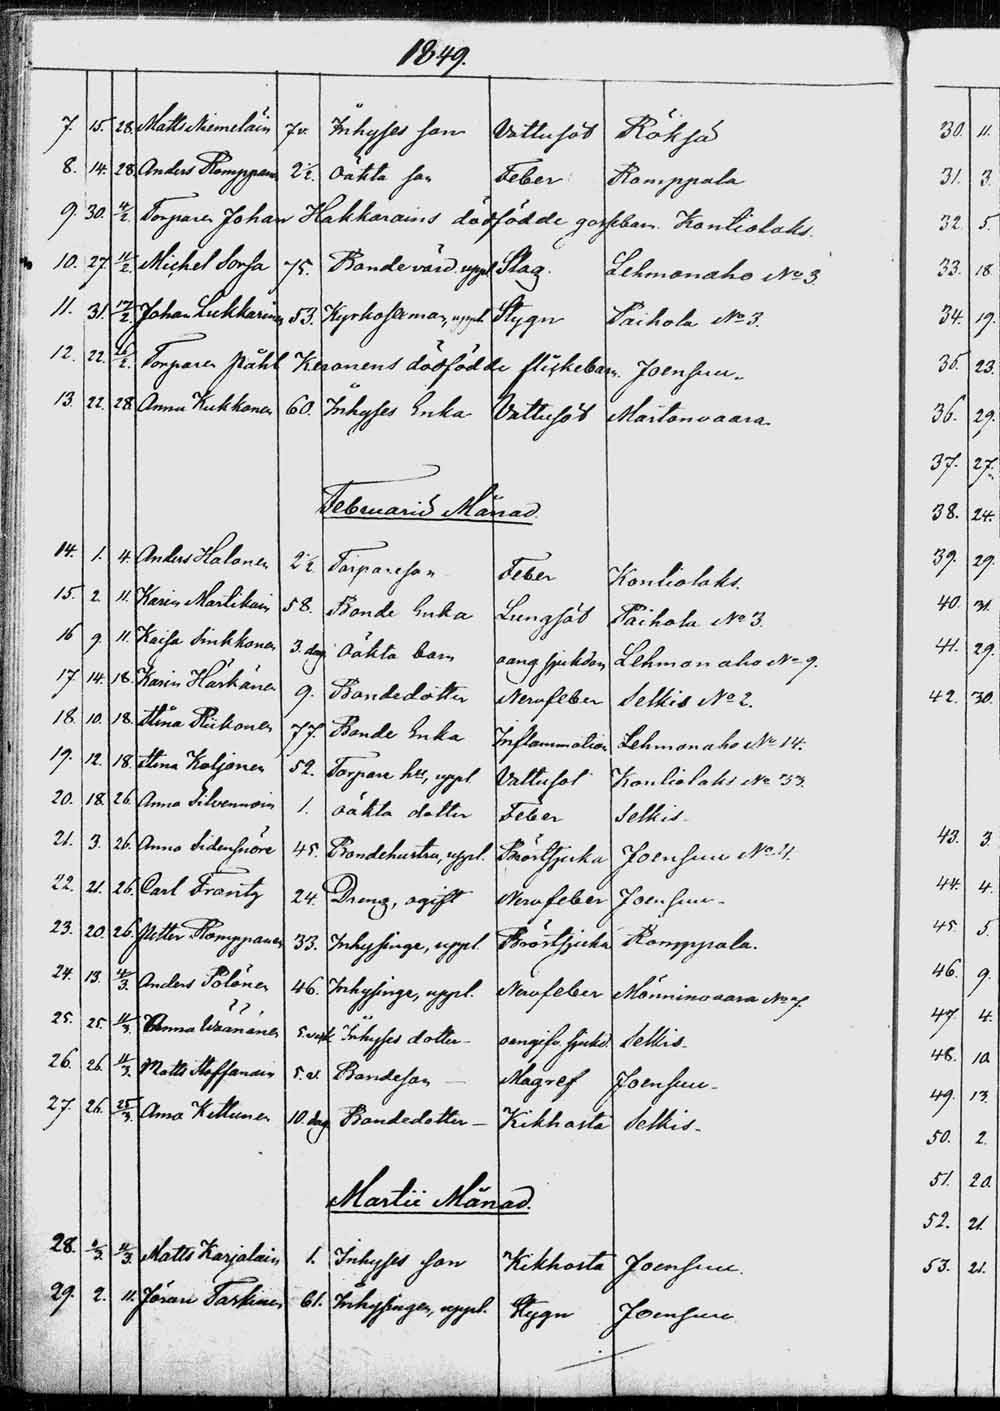 1849.
7. 15. 28. Matts Niemeläin 7 v. Inhyses son Vattusot Röksä
8. 14. 28. Anders Romppan 2 1/2. oäkta son Feber Romppala
9. 30. 4/2. Torparen Johan Hakkarains dödfödde gossebarn. Kontiolaks.
10. 27. 11/2. Michel Sorsa 75. Bonde värd. uppl Slag. Lehmonaho No 3.
11. 31. Johan Lukkarinen 53. uppl. Stygn Paihola No 3.
12. 22. Torparen Påhl Keronens dödfödde flickebarn. Joensuu.
13. 22. 28. Anna Kukkonen 60. Inhyses Enka Vattusot Martonvaara.
Februarii Månad.
14. 1. 4. Anders Halonen 2 1/2. Torpareson Feber Kontiolaks.
15. 2. 11. Karin Martikain 58. Bonde Enka Lungsot Paihola No 3.
16 9. 11. Kaisa Sinkkonen 3. dag oäkta barn oang. sjukdom Lehmonaho No 9.
17 14. 18. Karin Härkänen 9. Bondedotter Nervfeber Selkis No 2.
18. 10. 18. Stina Piikonen 77. Bonde Enka Inflammation Lehmonaho No 14.
19. 12. 18. Stina Koljonen 52. Torpare hu, uppl Vattusot Kontiolaks No 33.
20. 18. 26. Anna Silvennoin 1. oäkta dotter Feber Selkis.
21. 3. 26. Anna Sidensnöre 45. Bondehustru, uppl. Bröstsjuka Joensuu No 4.
22. 21. 26. Carl Frantz 24. Dreng, ogift Nervfeber Joensuu.
23. 20. 26. Petter Romppanen 33. Inhysinge, uppl. Bröstsjuka Romppala.
24. 13. 4/3. Anders Pölönen 46. Inhysinge, uppl. Nervfeber Mönninvaara No 7.
25. 25. 11/3. Anna Wäänänen 5. veck Inhyses dotter oangifv. sjukd. Selkis.
26. 26. 11/3. Matts Hoffandin 5. v. Bondeson Magref Joensuu.
27. 26. 25/3. Anna Kettunen 10. dag Bondedotter Kikhosta Selkis.
Martii Månad.
28. 11/3. Matts Karjalain 1. Inhyses son Kikhosta Joensuu.
29. 2. 11. Jöran Taskinen 61. Inhysingen, uppl. Stygn Joensuu
30. 11.
31. 3.
32. 5.
33. 18.
34. 19.
35. 23.
36. 29.
37. 27.
38. 24.
39. 29.
40. 31.
41. 29.
42. 30.
43. 3.
44. 4.
45. 5.
46. 9.
47 4.
48. 10.
49. 13.
50. 2.
51. 20.
52. 21.
53. 21.